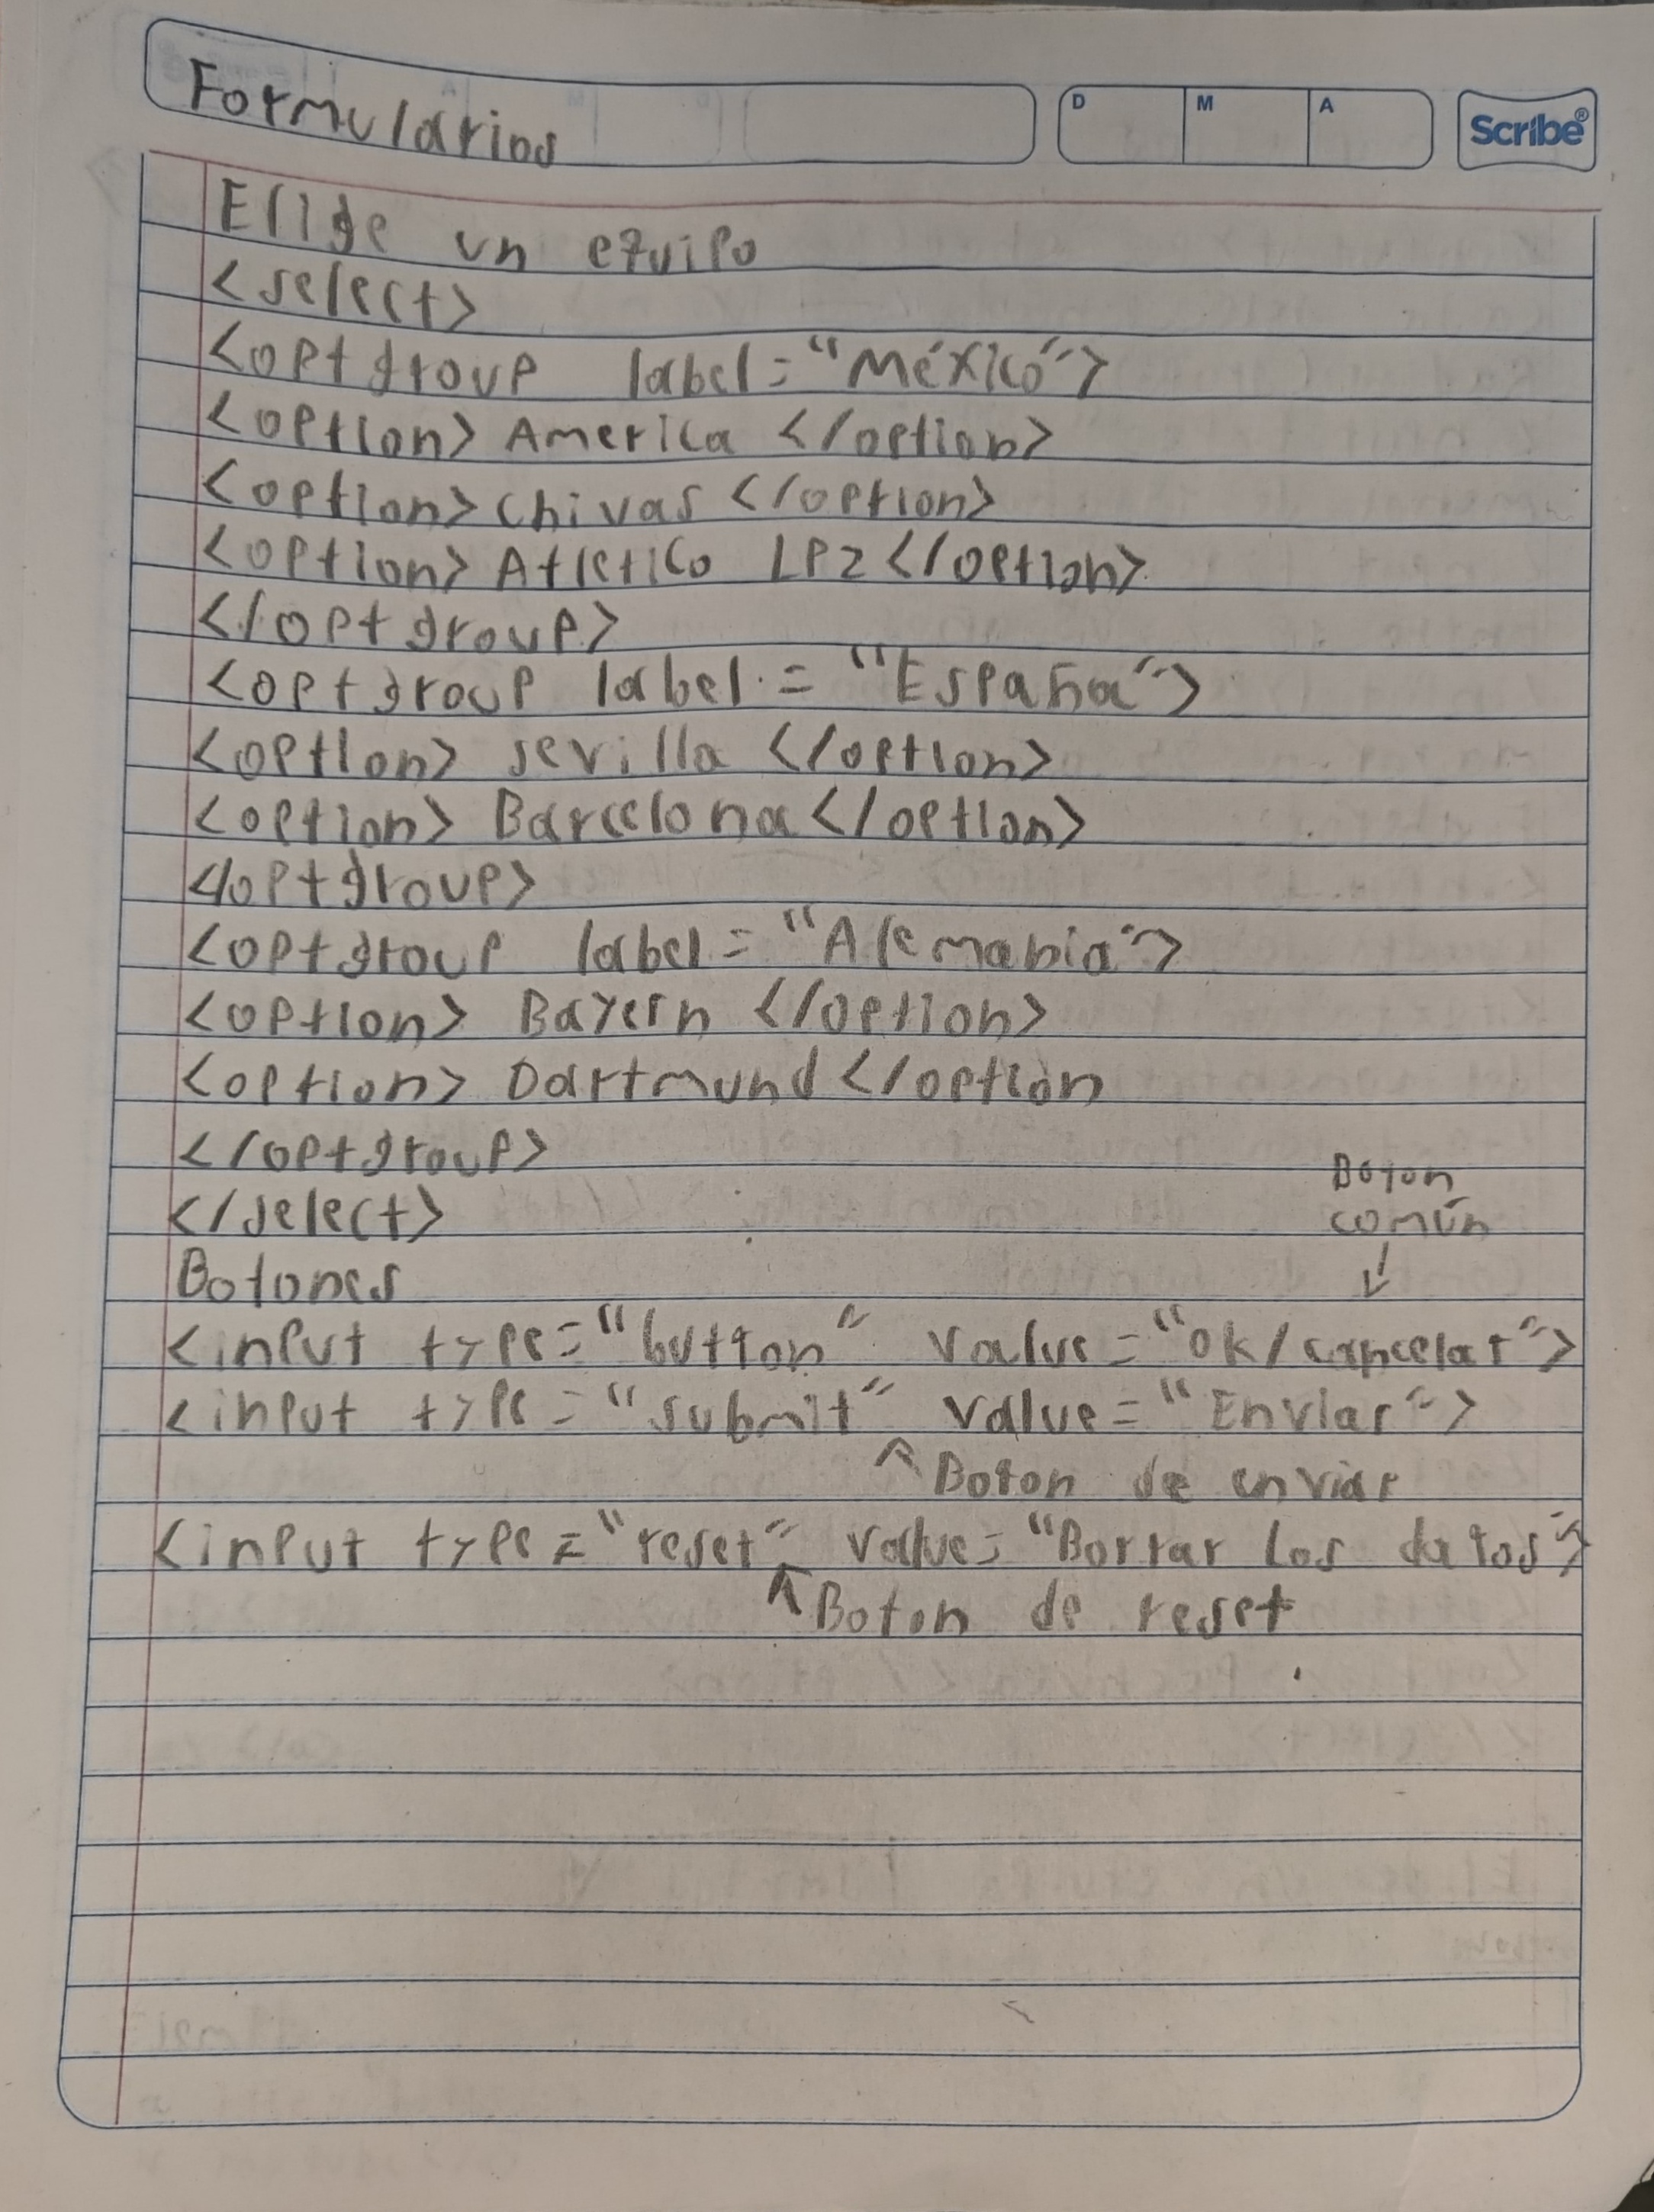 Formularios
D M A
Scribe®
Elige un equipo
<select>
<optgroup label="México">
<option> America </option>
<option> chivas </option>
<option> Atletico LPZ </option>
</optgroup>
<optgroup label = "España">
<option> sevilla </option>
<option> Barcelona </option>
</optgroup>
<optgroup label="Alemania">
<option> Bayern </option>
<option> Dortmund </option
</optgroup>
</select>
Boton
común
↓
Botones
<input type="button" value="ok/cancelar">
<input type="submit" value="Enviar">
↑ Boton de enviar
<input type="reset" value="Borrar Los datos">
↑ Boton de reset